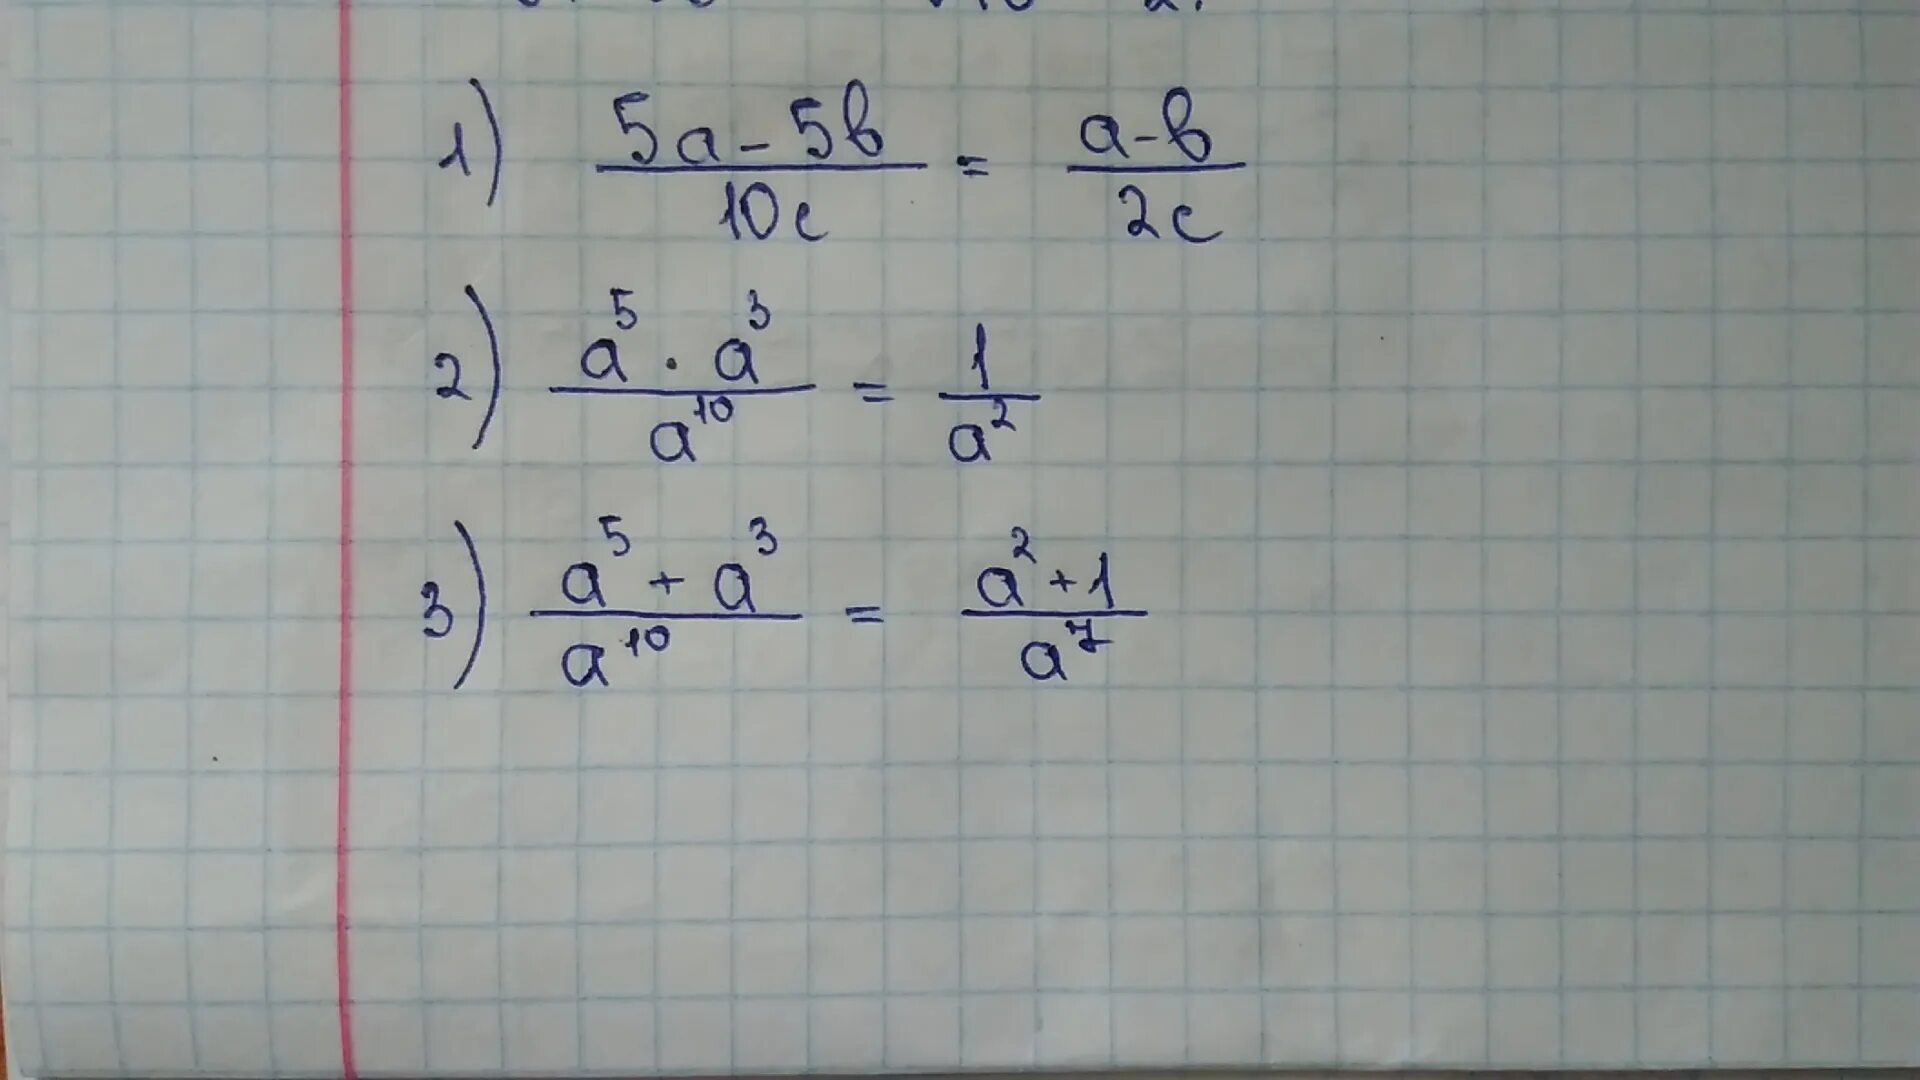 1) (5a - 5b)/(10c) = (a - b)/(2c)
2) (a⁵ · a³)/a¹⁰ = 1/a²
3) (a⁵ + a³)/a¹⁰ = (a² + 1)/a⁷